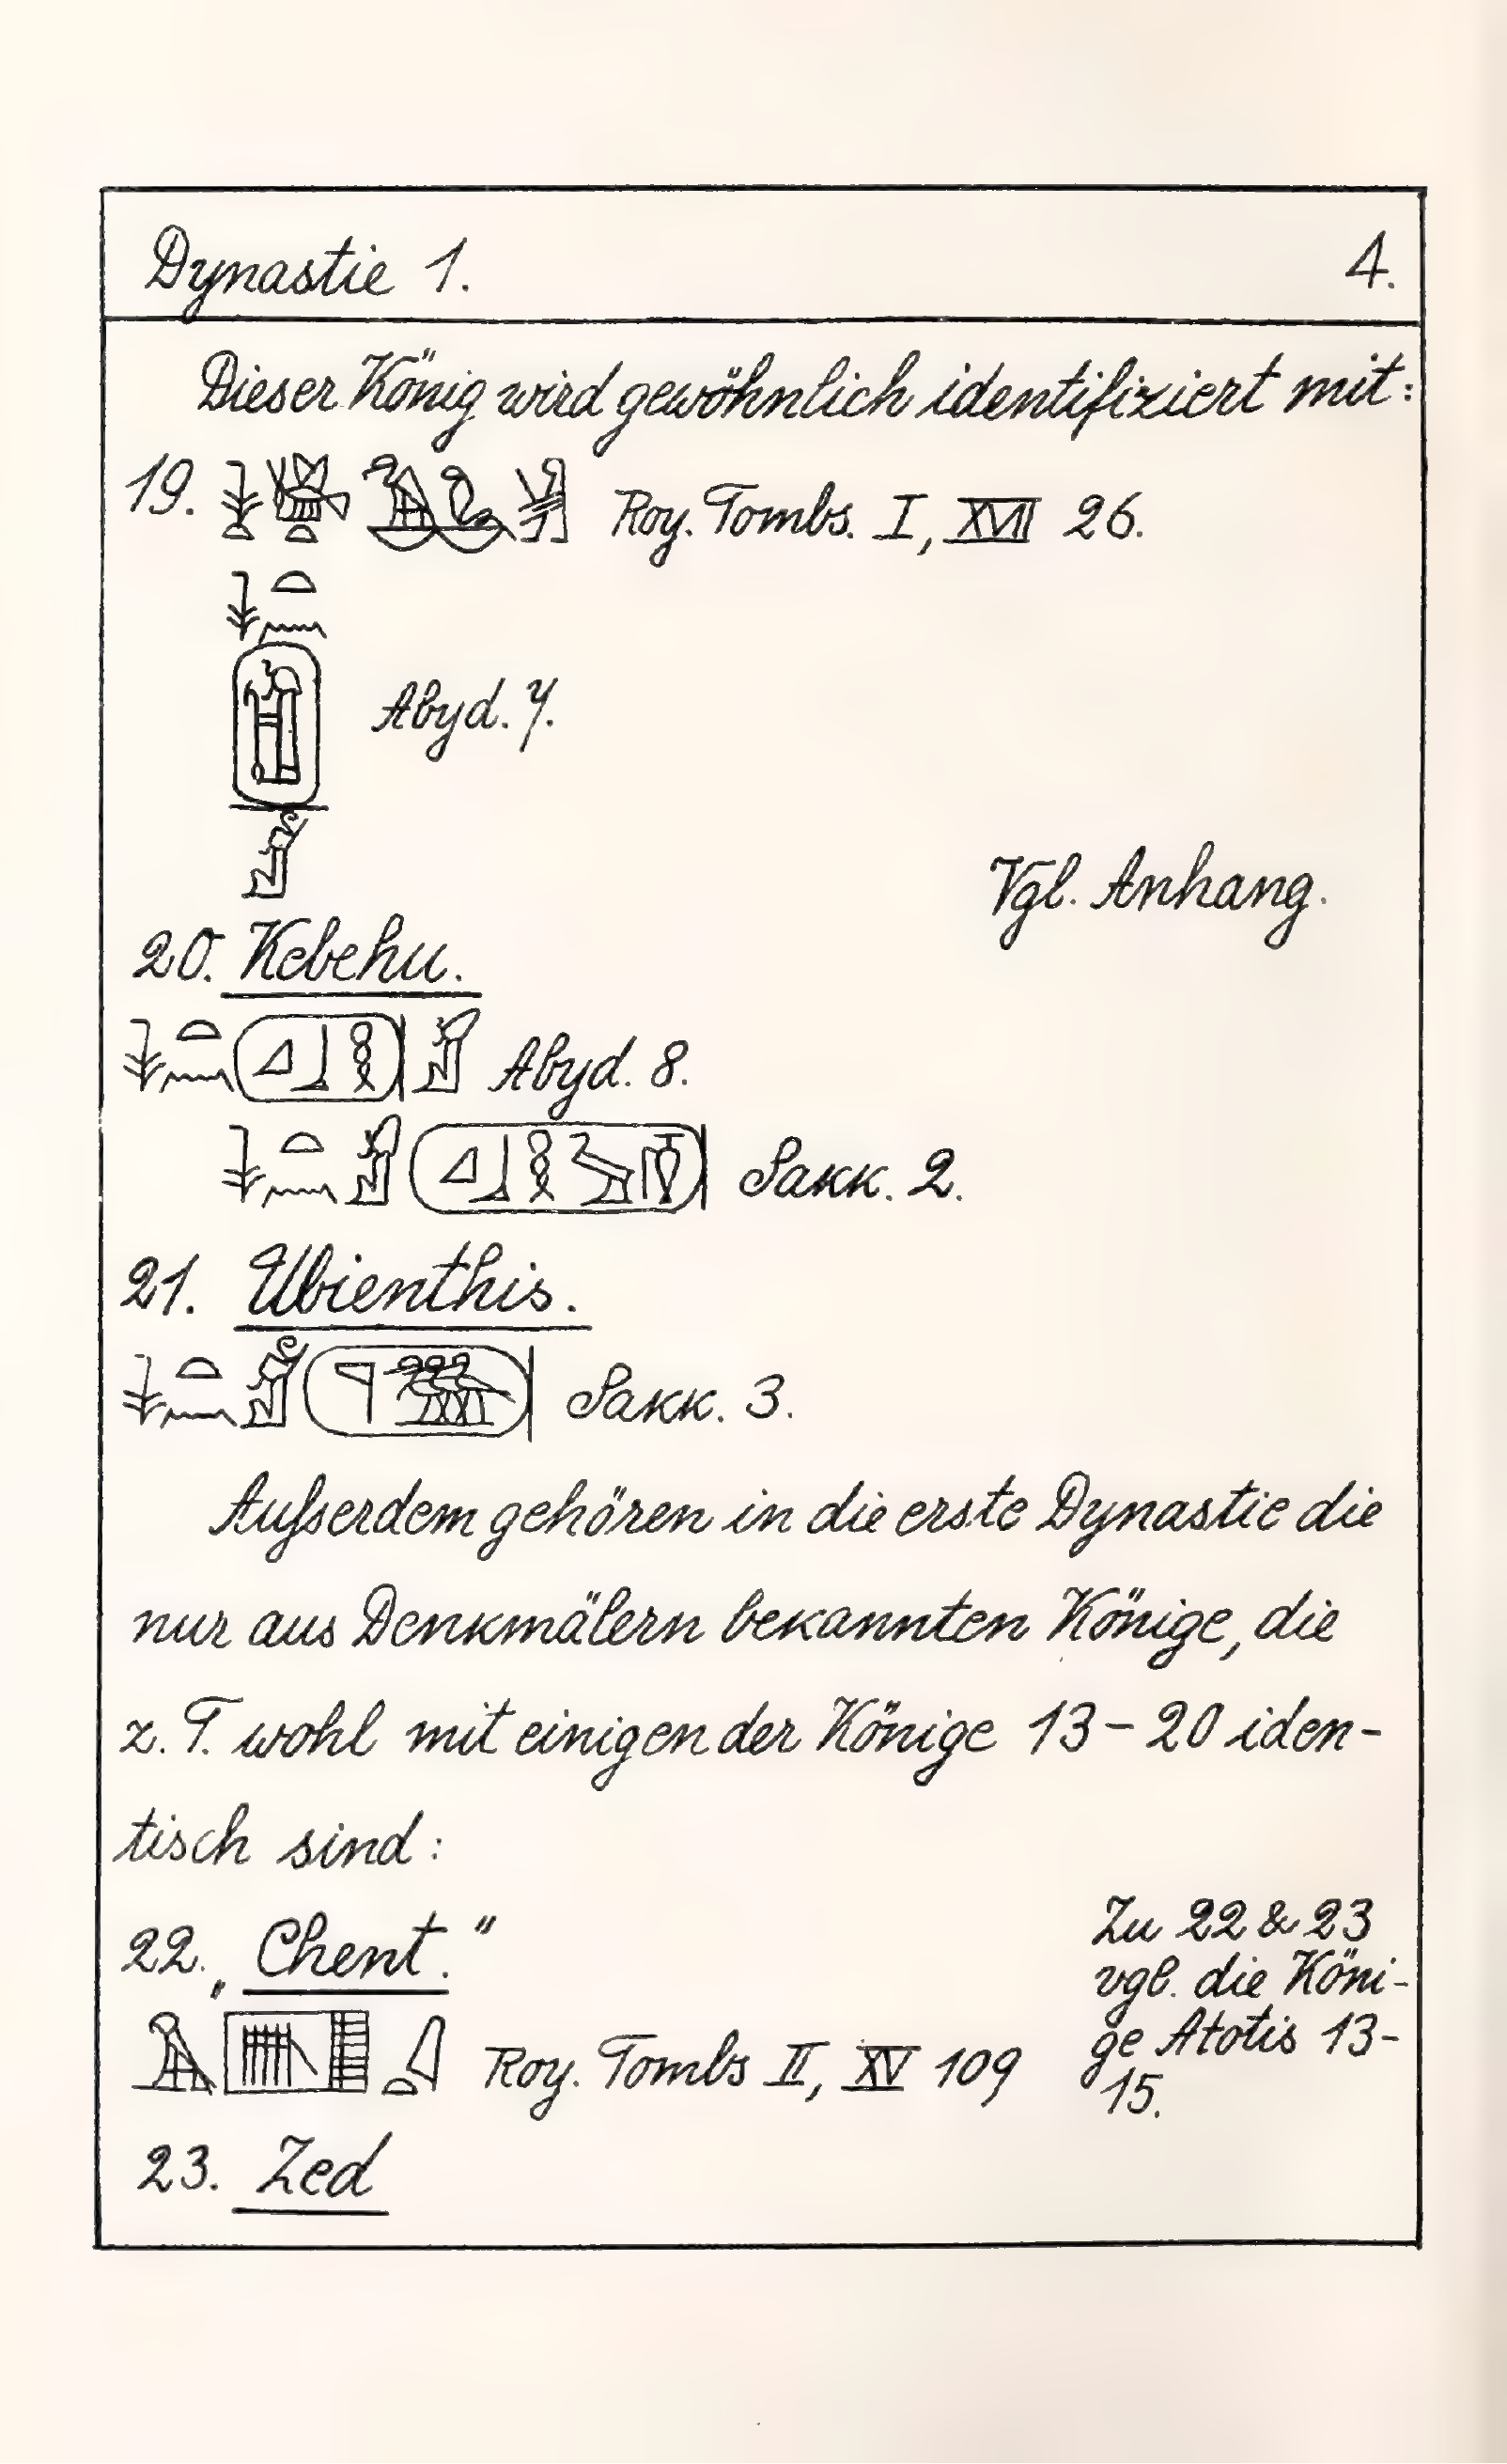 Dynastie 1. 4.
Dieser König wird gewöhnlich identifiziert mit:
19. Roy. Tombs. I, XVII 26.
Abyd. 7.
Vgl. Anhang.
20. Kebehu.
Abyd. 8.
Sakk. 2.
21. Ubienthis.
Sakk. 3.
Außerdem gehören in die erste Dynastie die
nur aus Denkmälern bekannten Könige, die
z. T. wohl mit einigen der Könige 13–20 iden-
tisch sind:
22. „Chent."
Roy. Tombs II, XV 109
Zu 22 & 23
vgl. die Köni-
ge Atotis 13-
15.
23. Zed